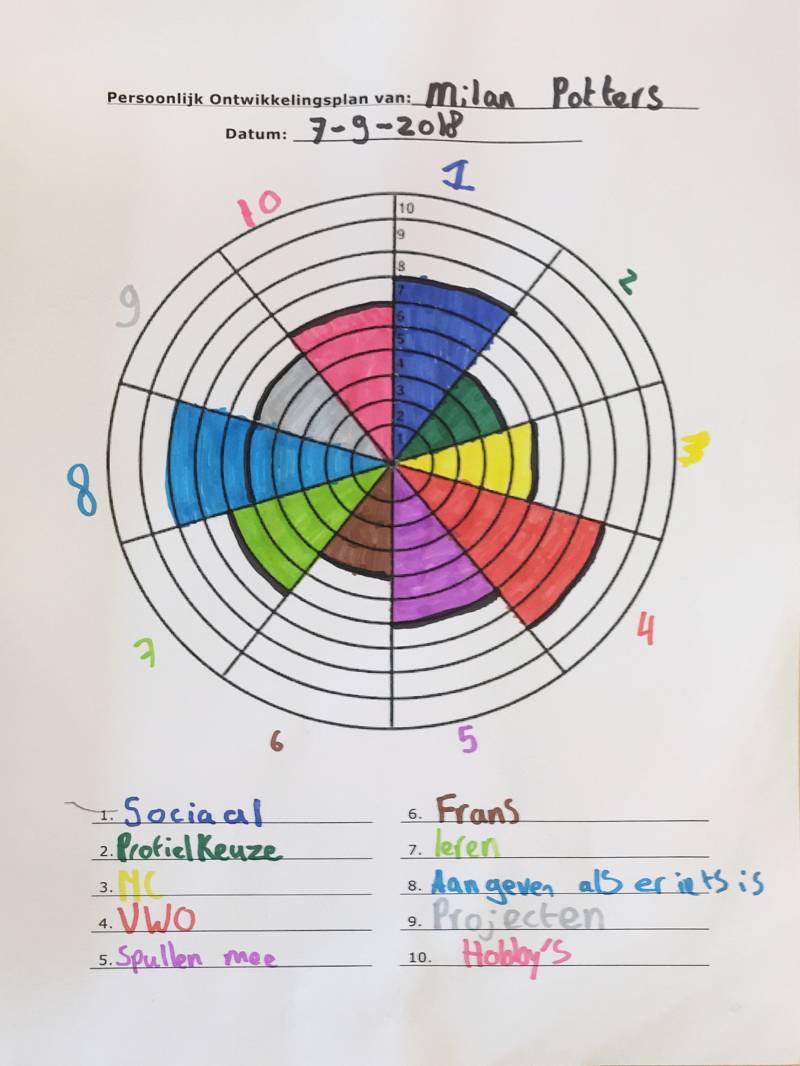 Persoonlijk Ontwikkelingsplan van: Milan Potters
Datum: 7-9-2018
1
10
2
10
9
8
7
6
5
4
3
2
1
9
3
8
4
7
6
5
1. Sociaal
2. Profielkeuze
3. MC
4. VWO
5. Spullen mee
6. Frans
7. leren
8. Aangeven als er iets is
9. Projecten
10. Hobby's